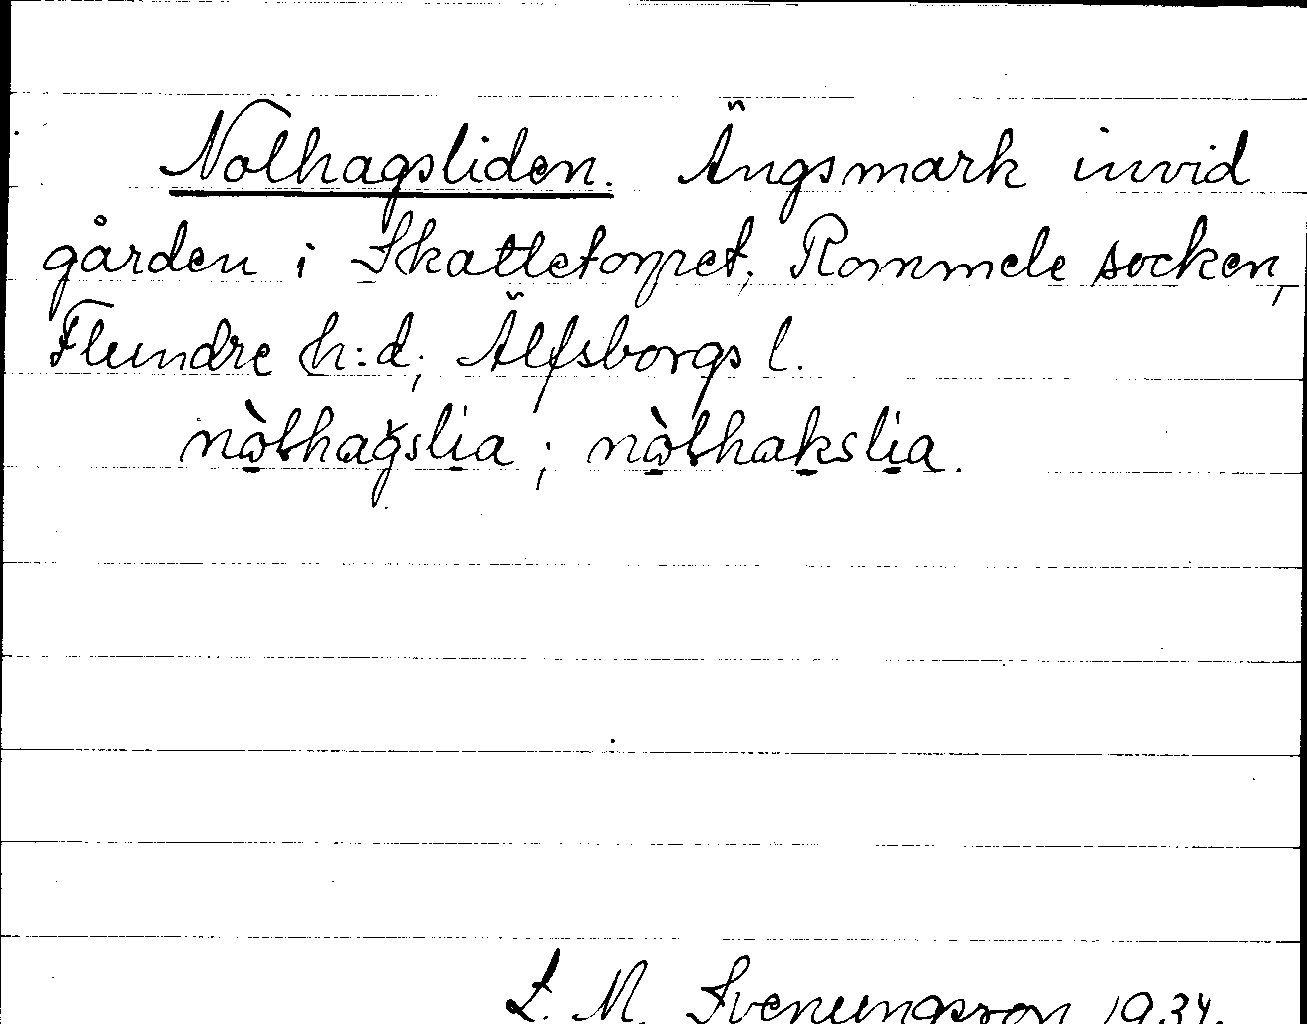 Nolhagsliden. Ängsmark invid
gården i Skattetorpet, Rommele socken,
Flundre h:d; Älfsborgs l.
nòlhagslia ; nòlhakslia.
S. M. Svenungsson 1934.